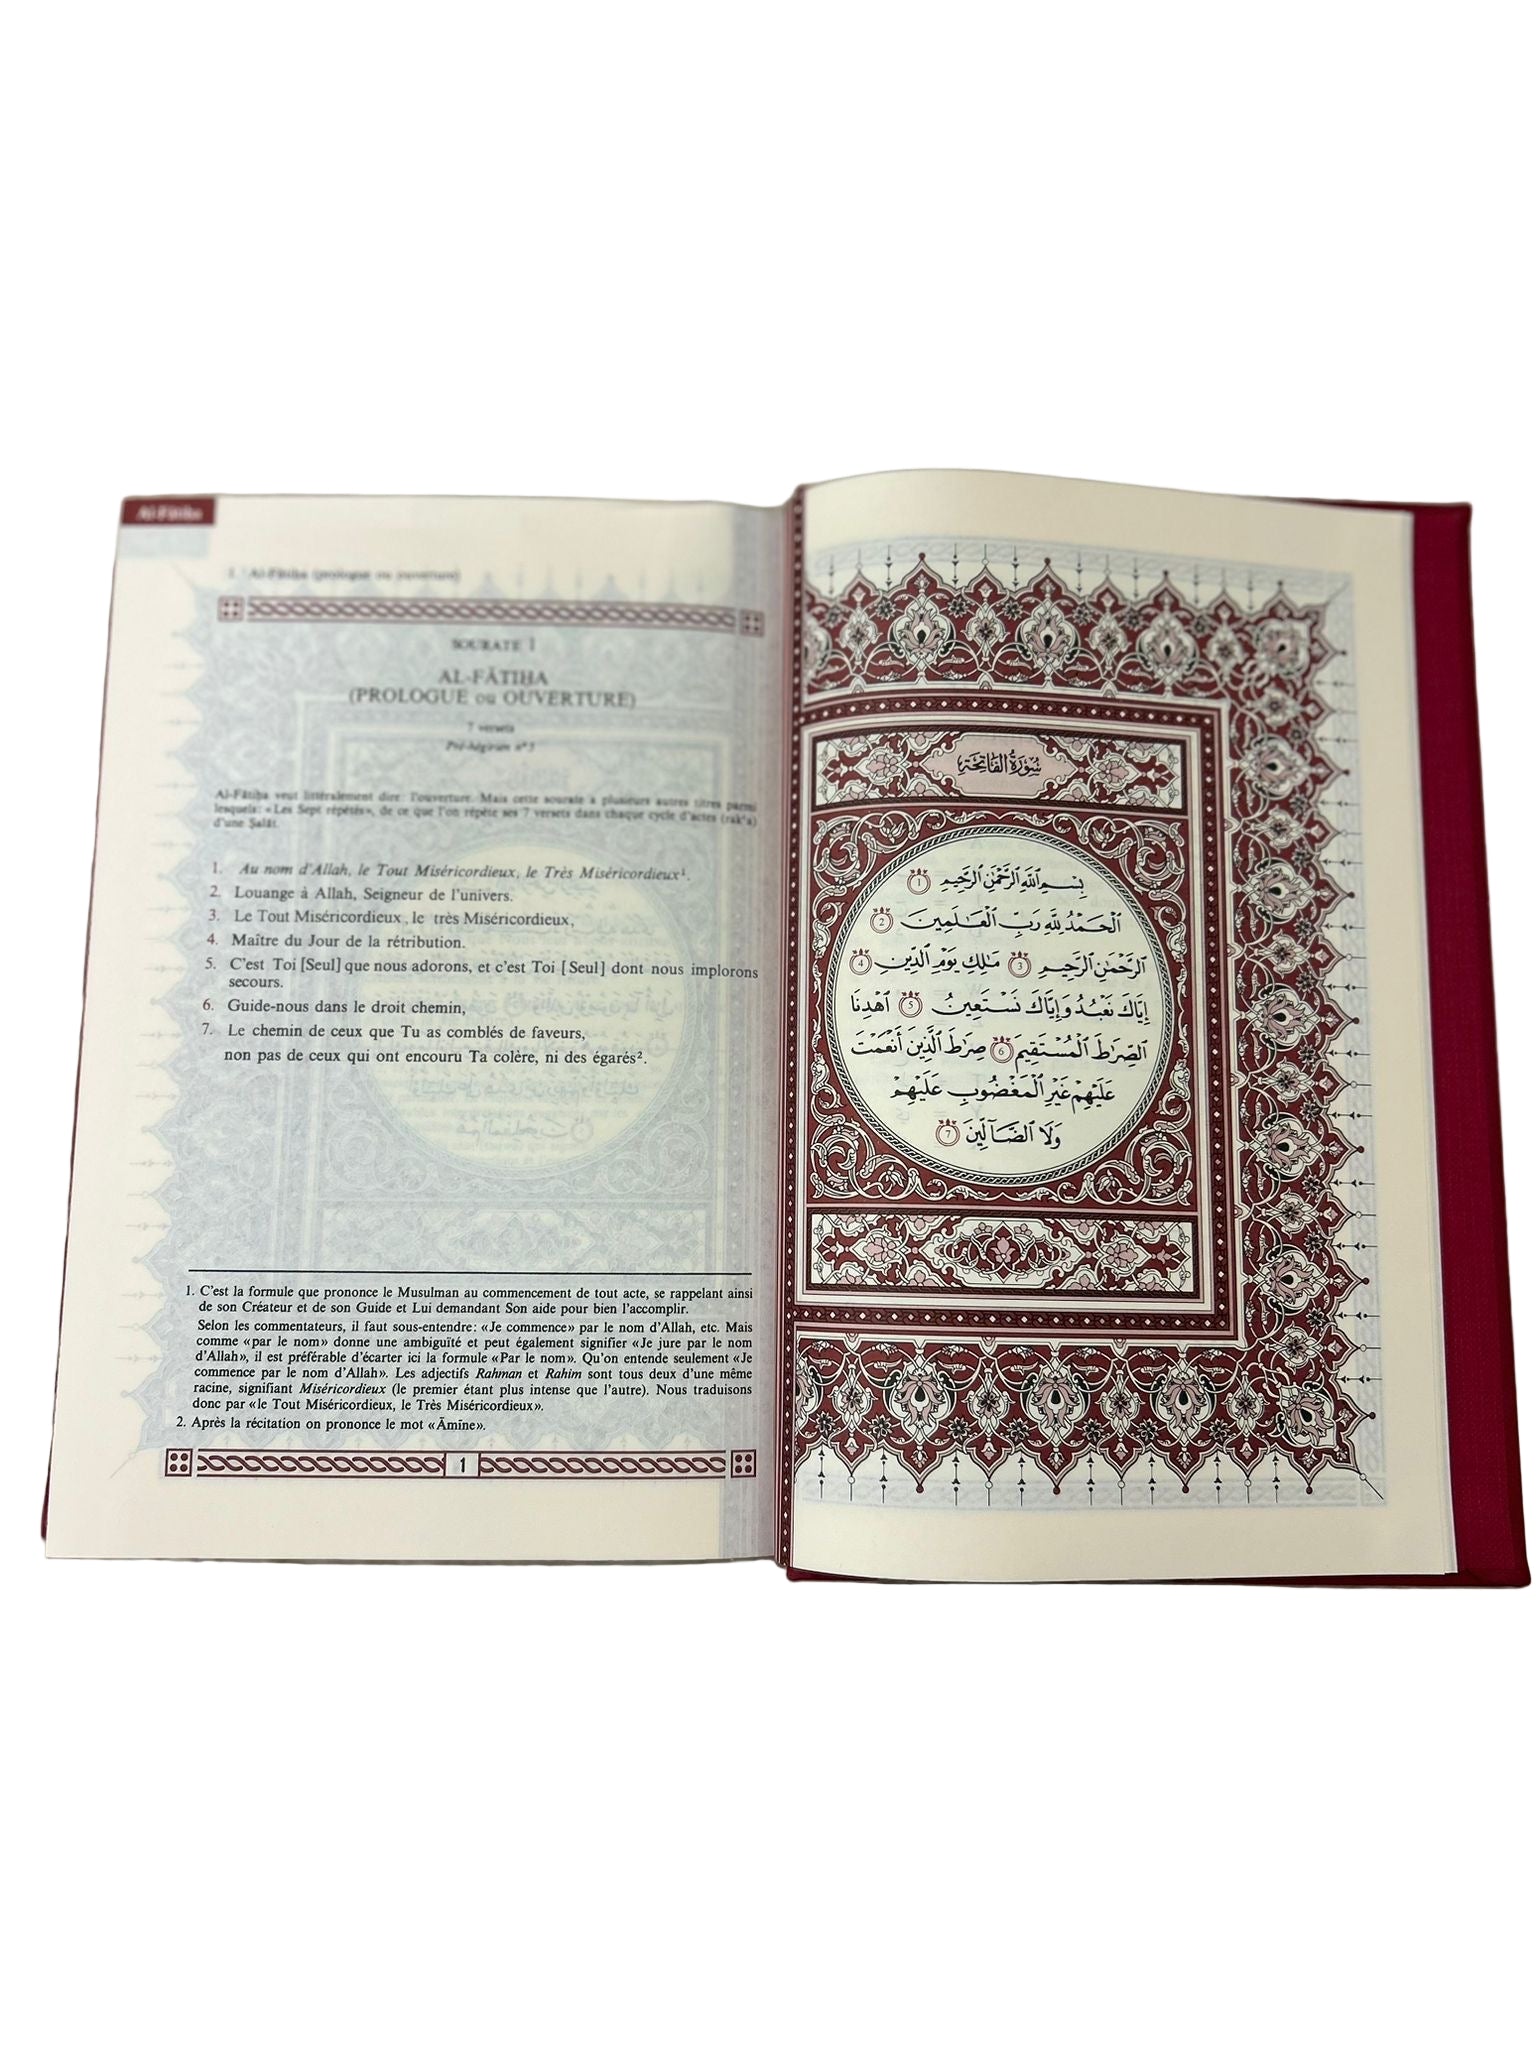 Al-Fātiḥa
1. Al-Fātiḥa (prologue ou ouverture)
SOURATE 1
AL-FĀTIḤA
(PROLOGUE ou OUVERTURE)
7 versets
Pré-hégirien n° 5
Al-Fātiḥa veut littéralement dire: l'ouverture. Mais cette sourate a plusieurs autres titres parmi
lesquels: «Les Sept répétés», de ce que l'on répète ses 7 versets dans chaque cycle d'actes (rakʿa)
d'une Ṣalāt.
1. Au nom d'Allah, le Tout Miséricordieux, le Très Miséricordieux¹.
2. Louange à Allah, Seigneur de l'univers.
3. Le Tout Miséricordieux, le très Miséricordieux,
4. Maître du Jour de la rétribution.
5. C'est Toi [Seul] que nous adorons, et c'est Toi [Seul] dont nous implorons
secours.
6. Guide-nous dans le droit chemin,
7. Le chemin de ceux que Tu as comblés de faveurs,
non pas de ceux qui ont encouru Ta colère, ni des égarés².
1. C'est la formule que prononce le Musulman au commencement de tout acte, se rappelant ainsi
de son Créateur et de son Guide et Lui demandant Son aide pour bien l'accomplir.
Selon les commentateurs, il faut sous-entendre: «Je commence» par le nom d'Allah, etc. Mais
comme «par le nom» donne une ambiguïté et peut également signifier «Je jure par le nom
d'Allah», il est préférable d'écarter ici la formule «Par le nom». Qu'on entende seulement «Je
commence par le nom d'Allah». Les adjectifs Rahman et Rahim sont tous deux d'une même
racine, signifiant Miséricordieux (le premier étant plus intense que l'autre). Nous traduisons
donc par «le Tout Miséricordieux, le Très Miséricordieux».
2. Après la récitation on prononce le mot «Āmīne».
1
سُورَةُ الفَاتِحَة
بِسْمِ ٱللَّهِ ٱلرَّحْمَٰنِ ٱلرَّحِيمِ ١
ٱلْحَمْدُ لِلَّهِ رَبِّ ٱلْعَٰلَمِينَ ٢
ٱلرَّحْمَٰنِ ٱلرَّحِيمِ ٣ مَٰلِكِ يَوْمِ ٱلدِّينِ ٤
إِيَّاكَ نَعْبُدُ وَإِيَّاكَ نَسْتَعِينُ ٥ ٱهْدِنَا
ٱلصِّرَٰطَ ٱلْمُسْتَقِيمَ ٦ صِرَٰطَ ٱلَّذِينَ أَنْعَمْتَ
عَلَيْهِمْ غَيْرِ ٱلْمَغْضُوبِ عَلَيْهِمْ
وَلَا ٱلضَّآلِّينَ ٧